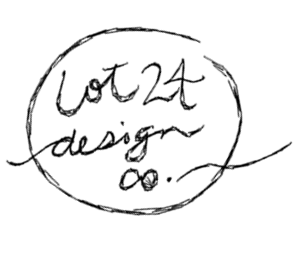 Lot 24
design
co.